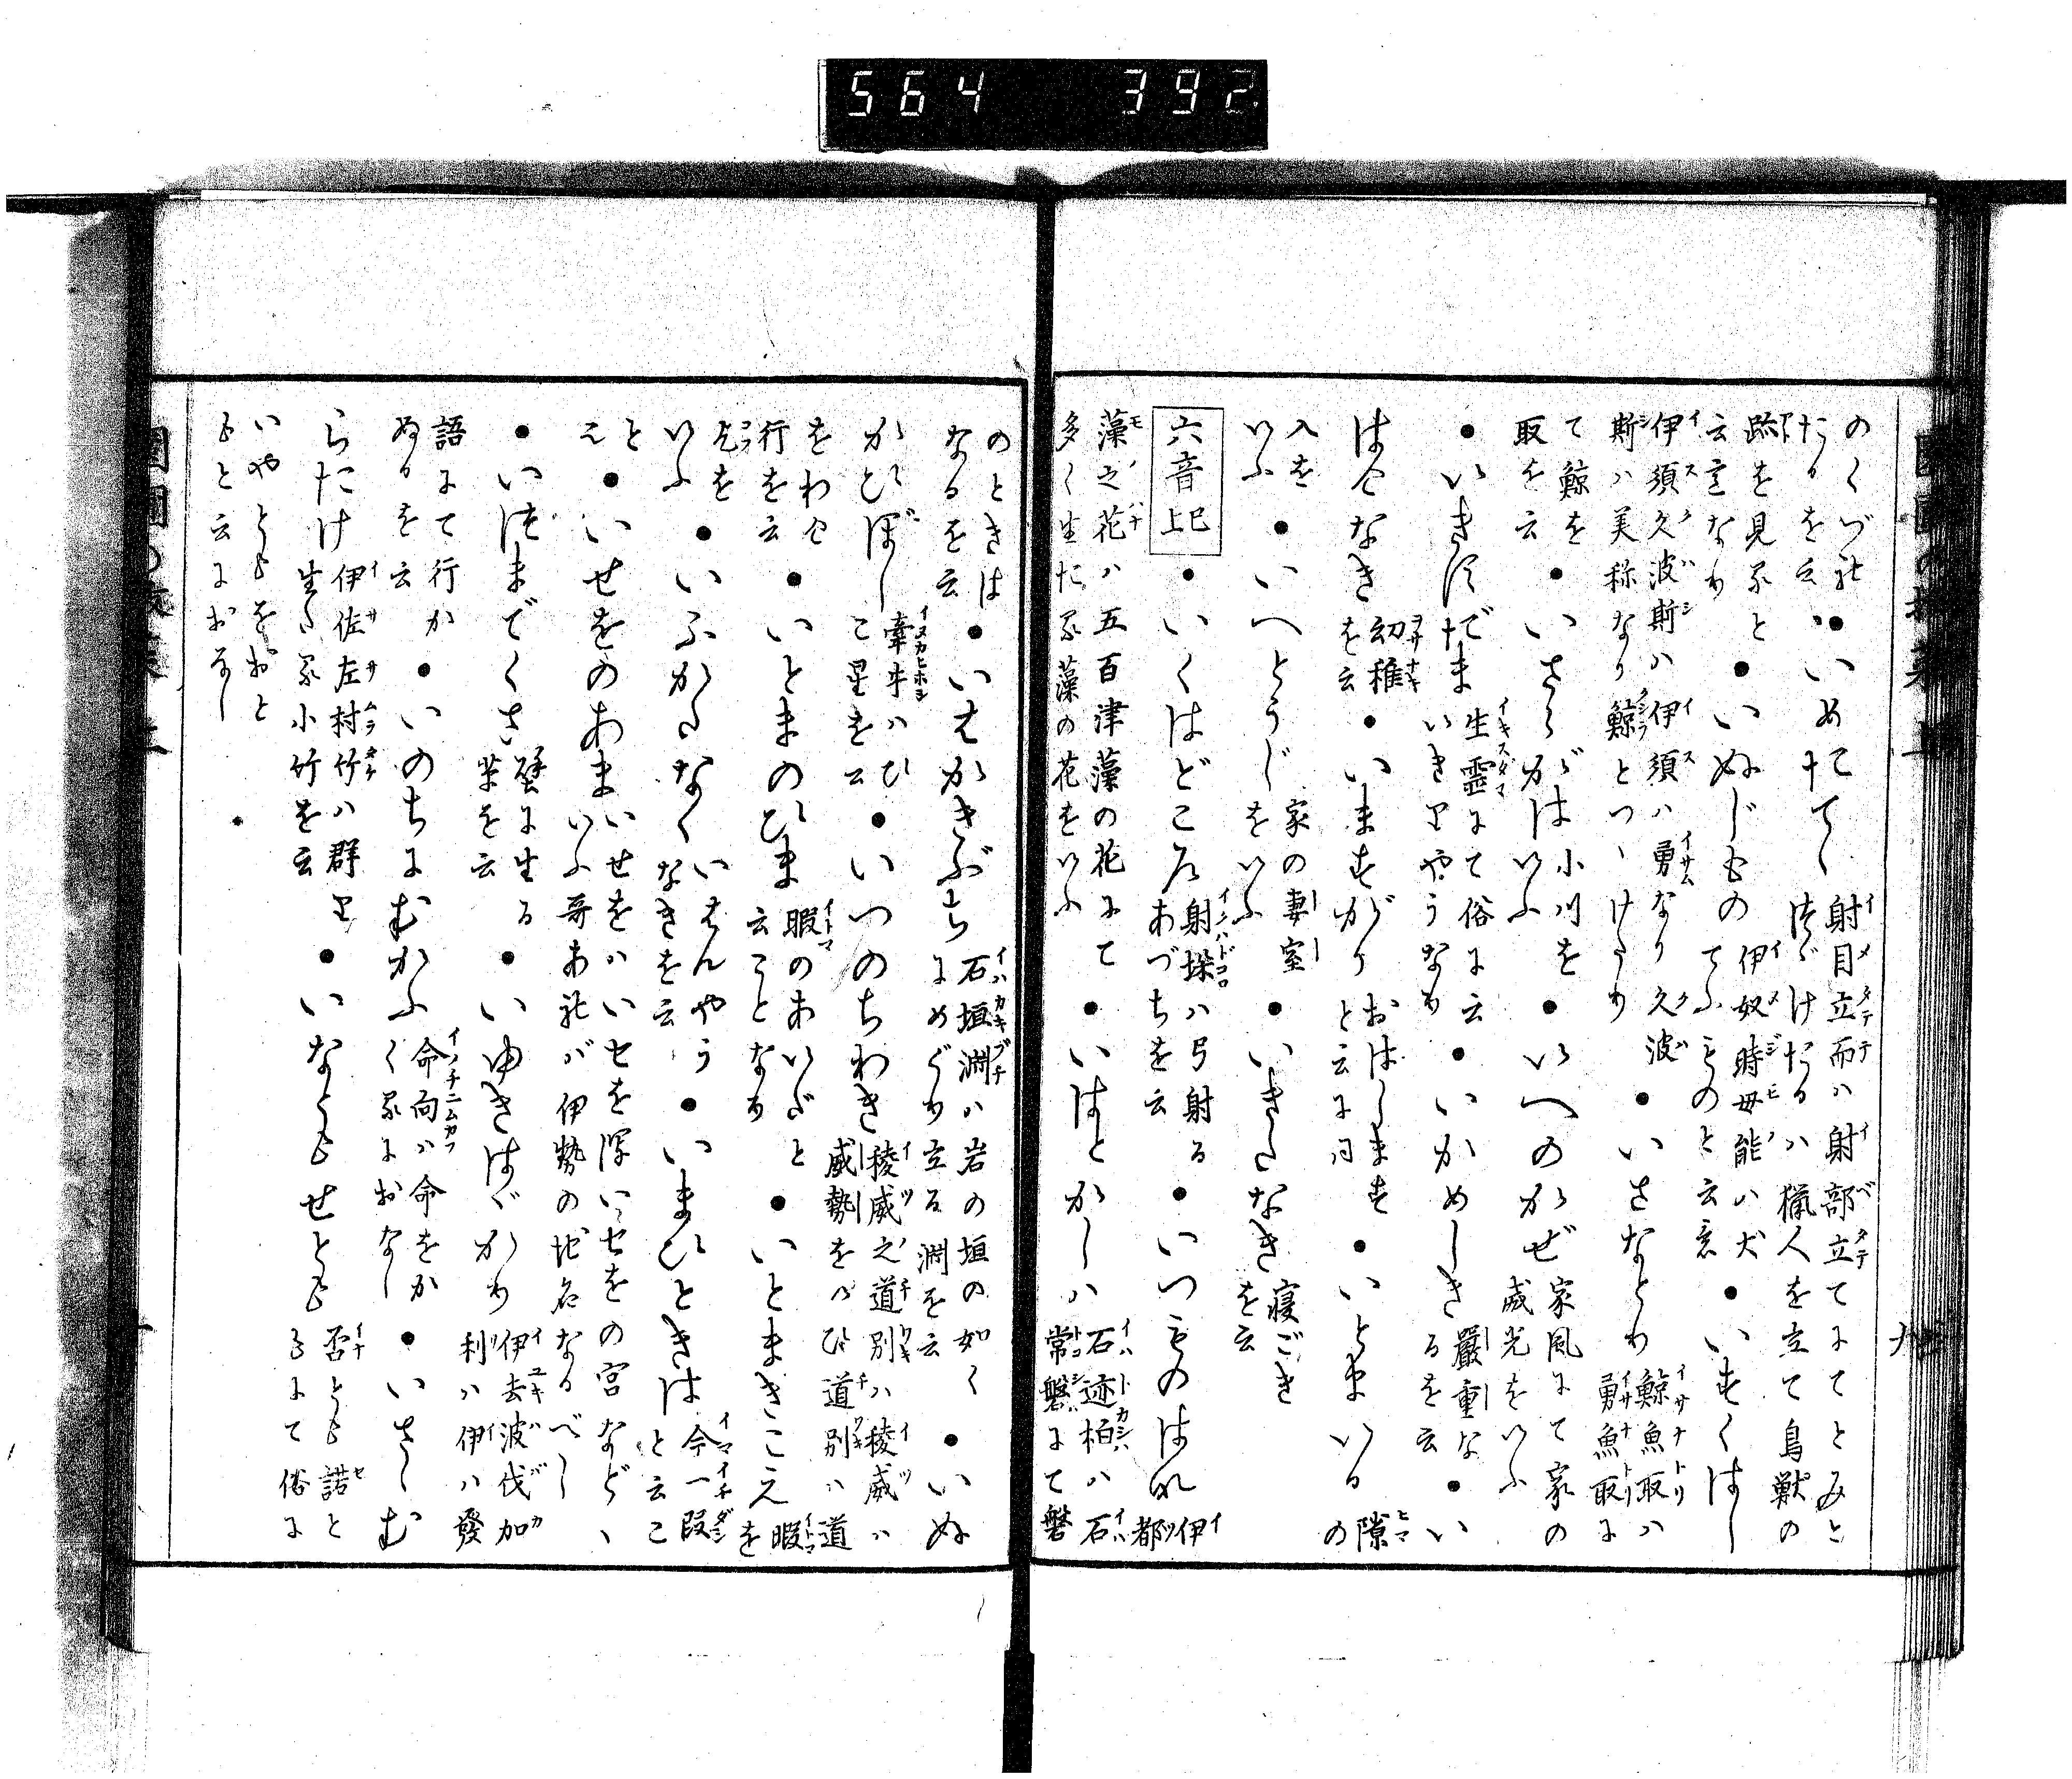 564 392
のくづれ●いめたてゝ 射目立而ハ射部立てにてとみと
たるを云 つゞけたるハ猟人を立て鳥獣の
跡を見るを云言なり ●いぬじもの 伊奴時母能ハ犬てふものと云意 ●いすくはし
伊須久波斯ハ伊須ハ勇なり久波
斯ハ美称なり鯨とつゝけたり ●いさなとり 鯨魚取ハ勇魚取に
て鯨を取を云 ●いさゝがは 小川をいふ ●いへのかぜ 家風にて家の威光をいふ
●いきすだま 生霊にて俗に云いきりやうなり ●いかめしき 嚴重なるを云 ●い
はけなき 幼稚を云 ●いますがり おはしますと云に同 ●いとまいる 隙の
入をいふ ●いへとうじ 家の妻室をいふ ●いきたなき 寝ごきを云
六音 上巳 ●いくはどころ 射垜ハ弓射るあづちを云 ●いつものはな 伊都
藻之花ハ五百津藻の花にて
多く生たる藻の花をいふ ●いはとかしハ 石迹柏ハ石常磐にて磐
のときはなるを云 ●いはかきぶち 石垣淵ハ岩の垣の如くにめぐり立る淵を云 ●いぬ
かひぼし 牽牛ハひこ星を云 ●いつのちわき 稜威之道別ハ稜威ハ威勢をいひ道別ハ道
をわけ行を云 ●いとまのひま 暇のあいだと云ことなり ●いとまきこえ 暇を
乞をいふ ●いふかたなく いはんやうなきを云 ●いまひときは 今一段と云こ
と ●いせをのあま いせをハいせを深いせをの宮などゝいふ哥あれバ伊勢の地名なるべし
●いつまでくさ 壁に生る草を云 ●いゆきはゞかり 伊去波伐加利ハ伊ハ發
語にて行かぬるを云 ●いのちにむかふ 命向ハ命をかくるにおなし ●いさゝむ
らたけ 伊佐左村竹ハ群生たる小竹を云 ●いなともせとも 否とも諾ともにて俗に
いやともをおと
もと云におなし